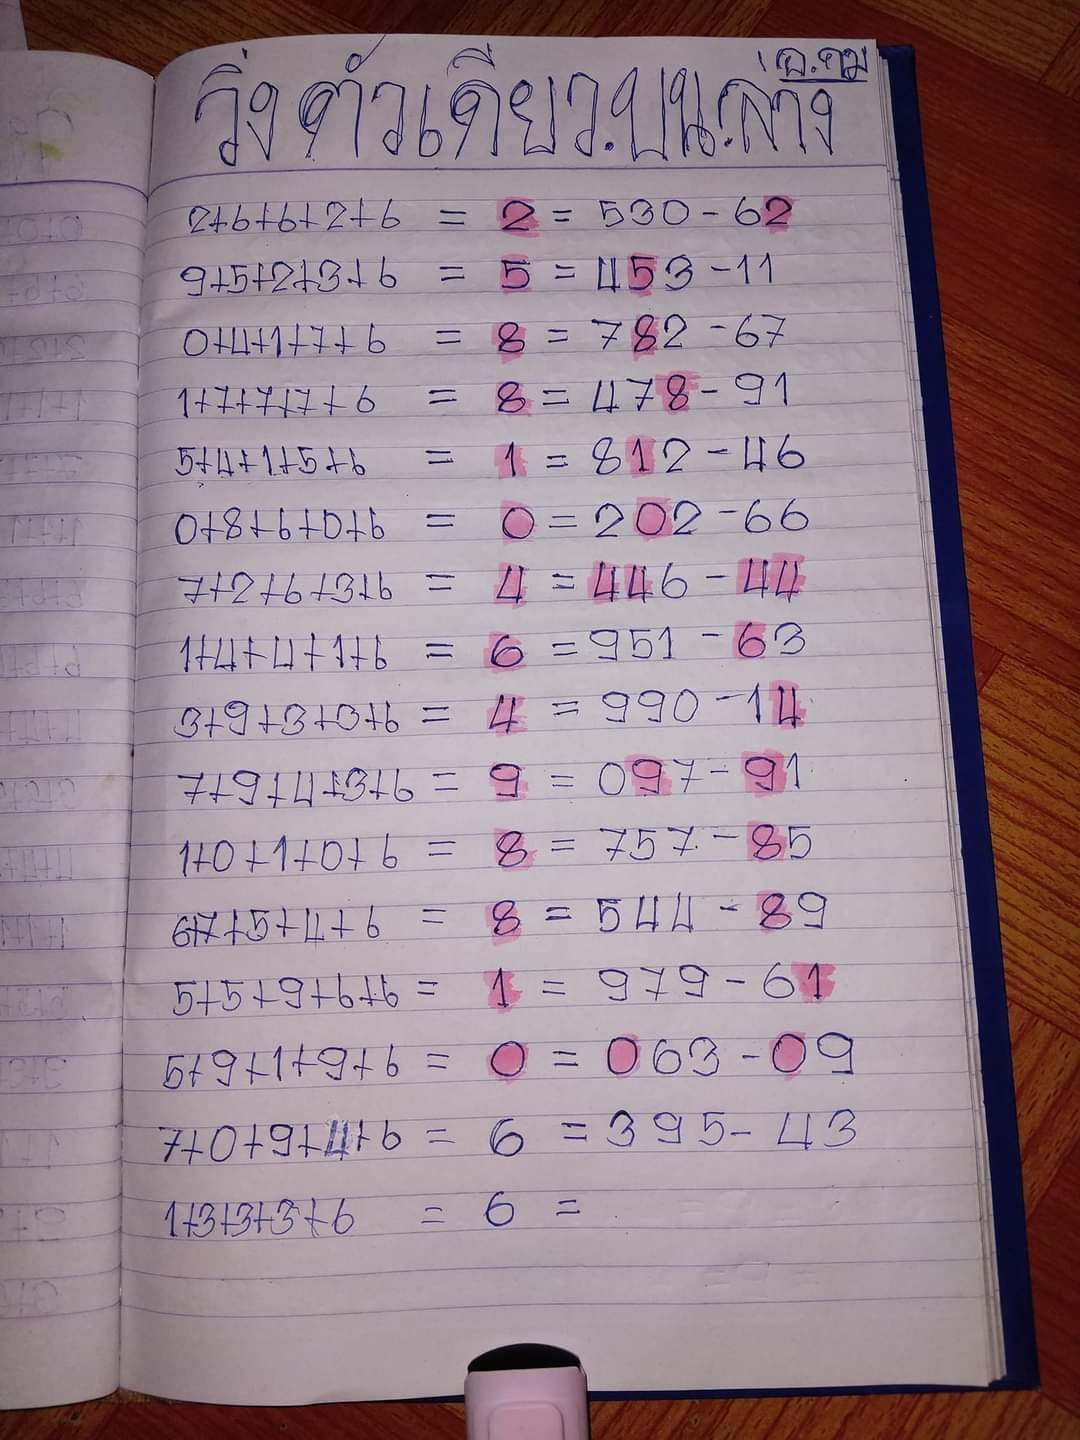 อ.คม
วิ่งตัวเดียว.บน.ล่าง
2+6+6+2+6 = 2 = 530-62
9+5+2+3+6 = 5 = 453-11
0+4+1+7+6 = 8 = 782-67
1+7+7+7+6 = 8 = 478-91
5+4+1+5+6 = 1 = 812-46
0+8+6+0+6 = 0 = 202-66
7+2+6+3+6 = 4 = 446-44
1+4+4+1+6 = 6 = 951-63
3+9+3+3+6 = 4 = 990-14
7+9+4+3+6 = 9 = 097-91
1+0+1+0+6 = 8 = 757-85
6+7+5+4+6 = 8 = 544-89
5+5+9+6+6 = 1 = 979-61
5+9+1+9+6 = 0 = 063-09
7+0+9+4+6 = 6 = 395-43
1+3+3+3+6 = 6 =